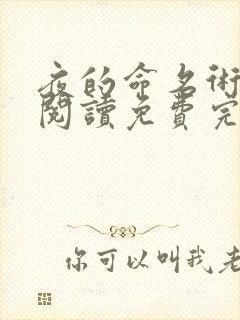 夜的命名術
閱讀免費完
你可以叫我老